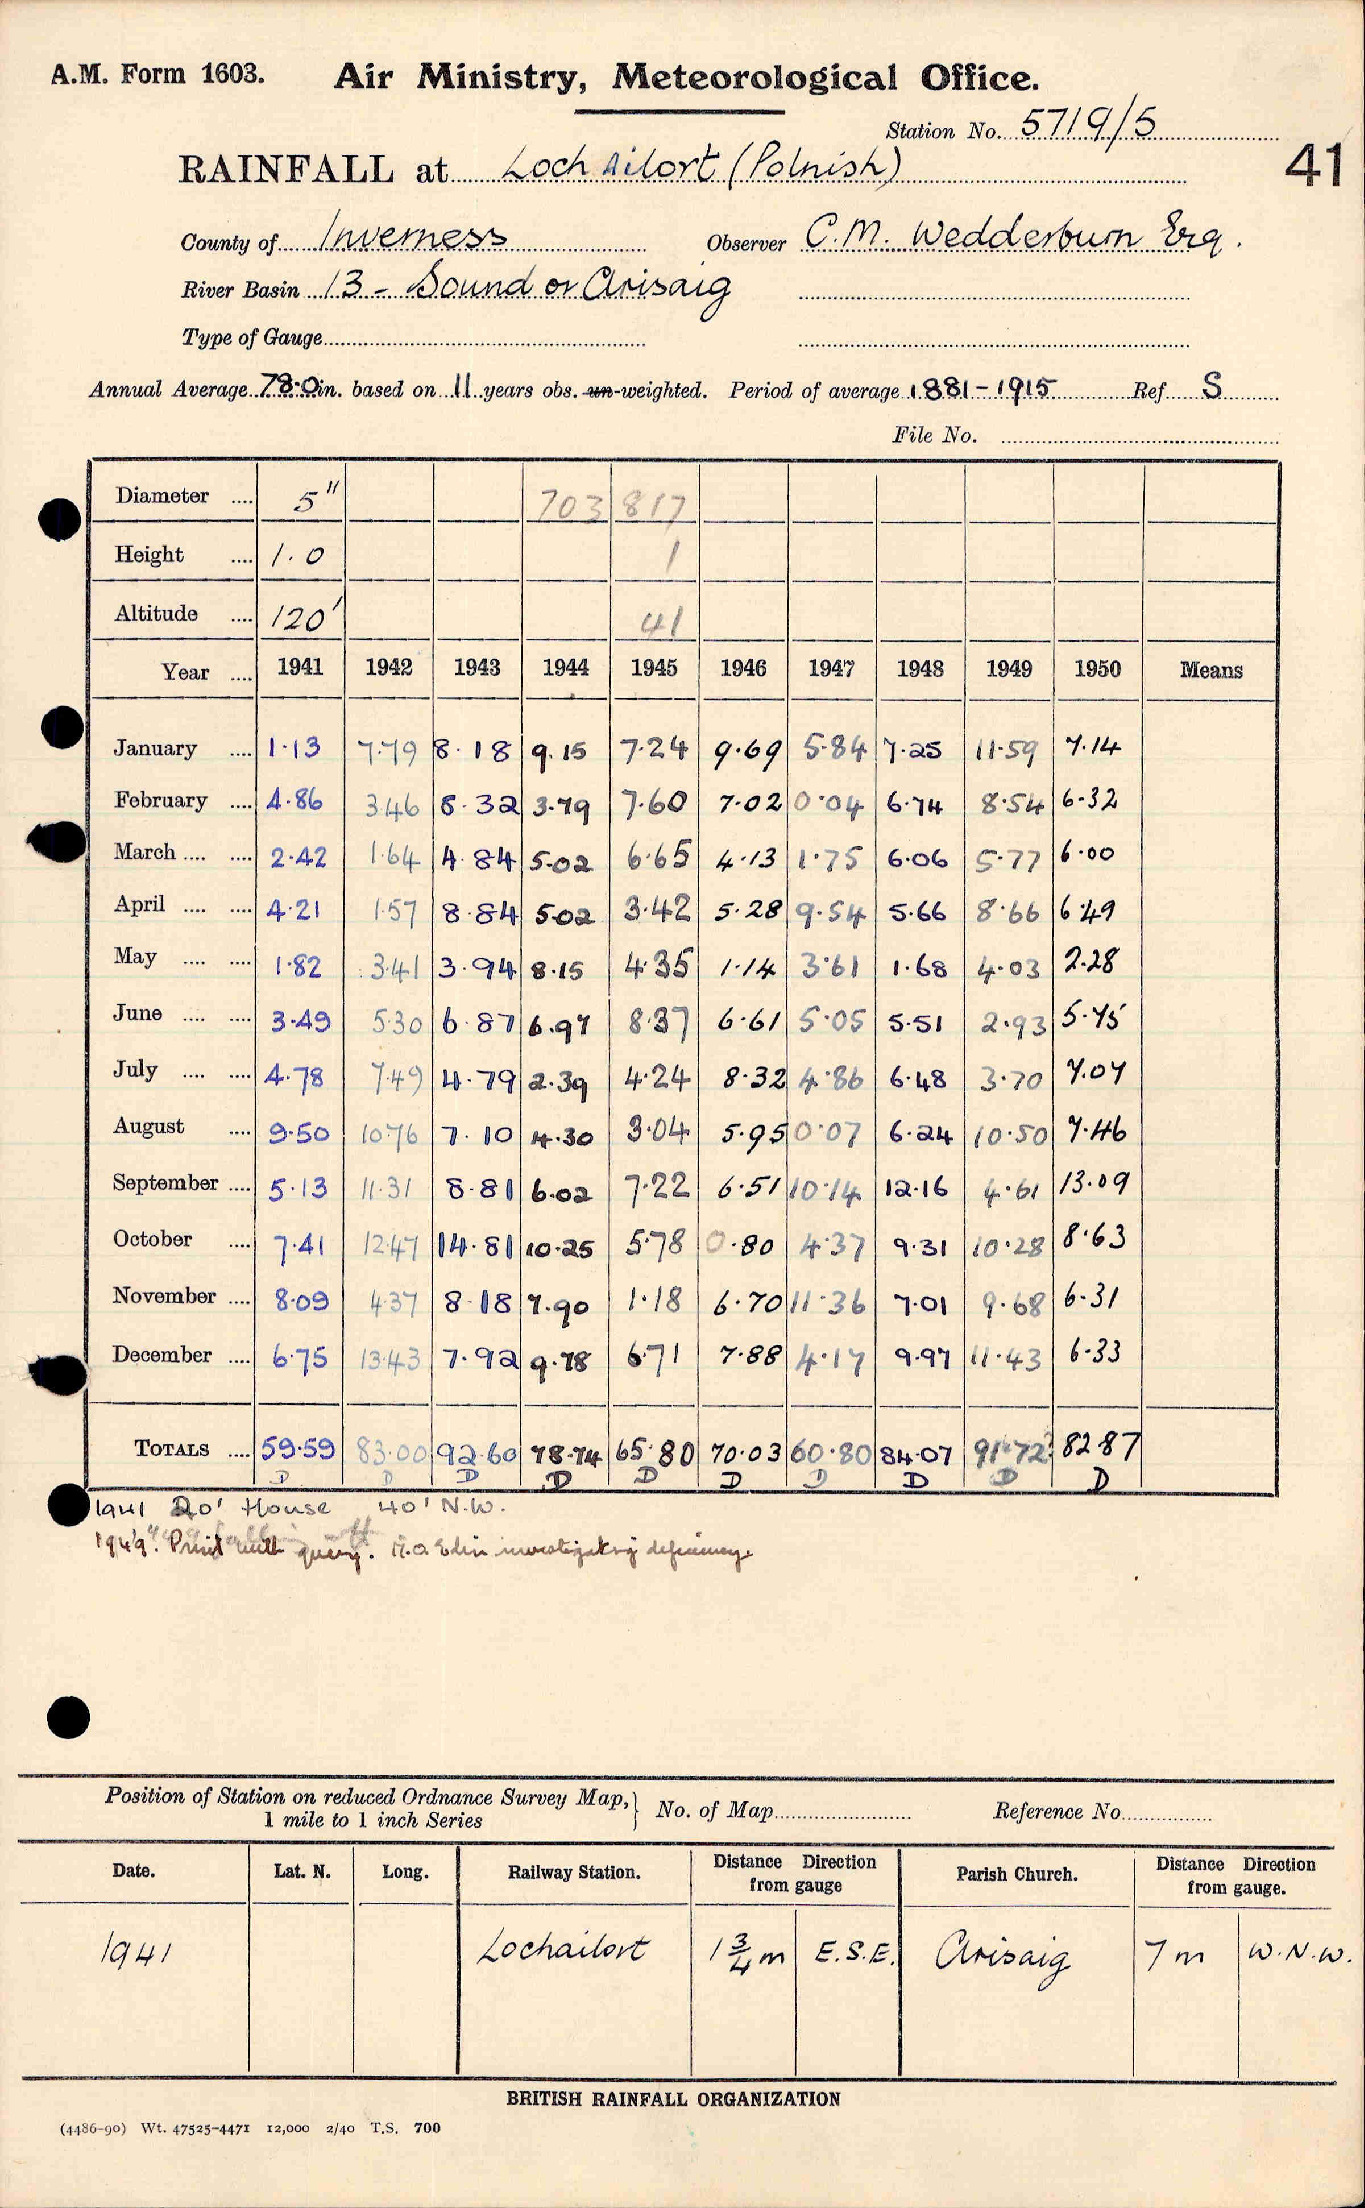 A.M. Form 1603. Air Ministry, Meteorological Office.
Station No. 5719/5
41
RAINFALL at Loch Ailort (Polnish)
County of Inverness Observer C.M. Wedderburn Esq.
River Basin 13 - Sound or Arisaig
Type of Gauge
Annual Average 78.0 in. based on 11 years obs. un-weighted. Period of average 1881-1915 Ref S
File No.
Diameter .... 5" 703 817
Height .... 1.0 1
Altitude .... 120' 41
Year .... 1941 1942 1943 1944 1945 1946 1947 1948 1949 1950 Means
January .... 1.13 7.79 8.18 9.15 7.24 9.69 5.84 7.25 11.59 7.14
February .... 4.86 3.46 8.32 3.79 7.60 7.02 0.04 6.74 8.54 6.32
March .... .... 2.42 1.64 4.84 5.02 6.65 4.13 1.75 6.06 5.77 6.00
April .... .... 4.21 1.57 8.84 5.02 3.42 5.28 9.54 5.66 8.66 6.49
May .... .... 1.82 3.41 3.94 8.15 4.35 1.14 3.61 1.68 4.03 2.28
June .... .... 3.49 5.30 6.87 6.97 8.37 6.61 5.05 5.51 2.93 5.75
July .... .... 4.78 7.49 4.79 2.39 4.24 8.32 4.86 6.48 3.70 7.07
August .... 9.50 10.76 7.10 4.30 3.04 5.95 0.07 6.24 10.50 7.46
September .... 5.13 11.31 8.81 6.02 7.22 6.51 10.14 12.16 4.61 13.09
October .... 7.41 12.47 14.81 10.25 5.78 0.80 4.37 9.31 10.28 8.63
November .... 8.09 4.37 8.18 7.90 1.18 6.70 11.36 7.01 9.68 6.31
December .... 6.75 13.43 7.92 9.78 6.71 7.88 4.17 9.97 11.43 6.33
TOTALS .... 59.59 83.00 92.60 78.74 65.80 70.03 60.80 84.07 91.72 82.87
D D D D D D D D D D
1941 20' House 40' N.W.
1949. Print with query. M.O. Edin investigating deficiency.
Position of Station on reduced Ordnance Survey Map, 1 mile to 1 inch Series } No. of Map Reference No.
Date. Lat. N. Long. Railway Station. Distance Direction from gauge Parish Church. Distance Direction from gauge.
1941 Lochailort 1 3/4 m E.S.E. Arisaig 7 m W.N.W.
BRITISH RAINFALL ORGANIZATION
(4486-90) Wt. 47525-4471 12,000 2/40 T.S. 700